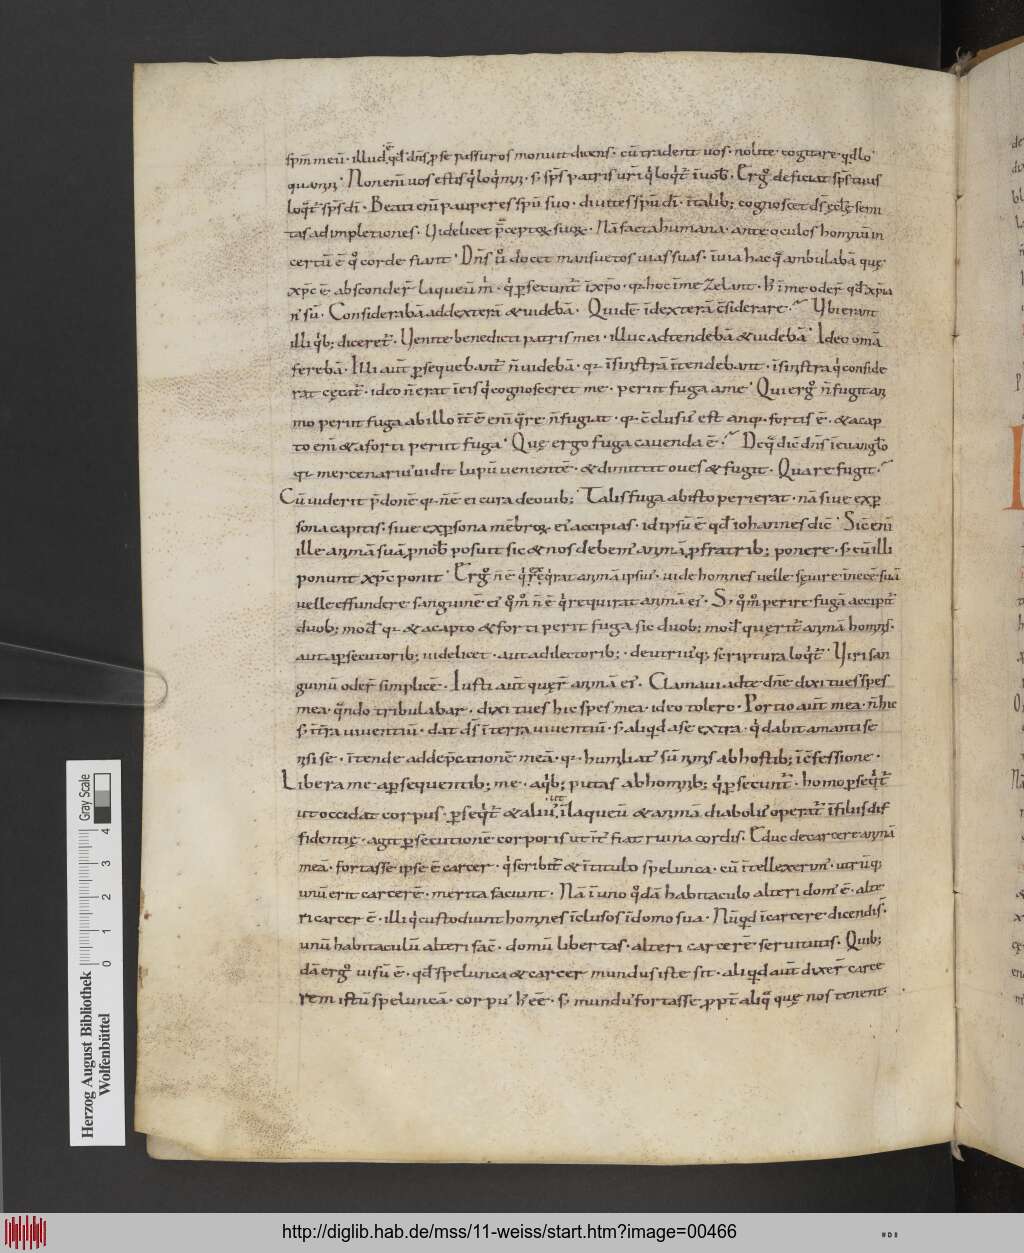 spm̄ meū · illud qđ dn̄s p se passuros monuit dicens · cū tradent uos · nolite cogitare · qđ lo
quamini · Non enī uos estis q̇ loq̇mini · s; sp̄s patris ur̄i q̇ loq̇t̄ in uob̄ · Ergo deficiat sp̄s tuus
loq̇t̄ sp̄s dī · Beati enī pauperes spū suo · diuites spū dī · īn talib; cognoscet ds̄
tas adimpletiones · Videlicet p̄ceptorum suorum · Nā facta humana · ante oculos hominū in
certū ē quo corde fiant · Dn̄s ū docet mansuetos uias suas · īn uia hac quā ambulabā quę
xp̄c ē · absconderunt laqueū m̄ · q̇ psecunt̄ īn xp̄o · quia hoc īn me zelant · ł īn me oder̄ · qđ xp̄ia
n' sū · Considerabā ad dexterā & uidebā · Quid ē īn dexterā c̄siderare · Vbi erant
illi q̇b; diceret̄ · Venite benedicti patris mei · illuc adtendebā & uidebā · Ideo omā
ferebā · Illi aut̄ psequebant̄ n̄ uidebā · quia īn sinistrā īntendebant · īn sinistra q̇ conside
rat cęcat̄ · ideo n̄ erat īn eis q̇ cognosceret me · periit fuga a me · Qui ergo n̄ fugit ani
mo periit fuga ab illo · enī quare n̄ fugiat · quia c̄clusus est · an quia fortis ē · & a cap
to enī & a forti periit fuga · Quę ergo fuga cauenda ē · De qua dic̄ dn̄s īn euanglo
quia mercenarius uidit lupū uenientē · & dimittit oues & fugit · Quare fugit ·
Cū uiderit p̄donē quia n̄ ē ei cura de ouib; Talis fuga ab isto perierat · nā siue ex p
sona capitis · siue ex psona mēbror · ei' accipias · id ipsū ē qđ iohannes dic̄ · Sic enī
ille animā suā p nob̄ posuit sic & nos debem' animā p fratrib; ponere · s; cū illi
ponunt xp̄c ponit · Ergo n̄ ē q̇ requirat animā ipsius · uide homines uelle sęuire īn necē suā
uelle effundere sanguinē ei' quom̄ n̄ ē q̇ requirat animā ei' · S; quom̄ perire fugā accipit̄
duob; mod̄ quia & a capto & a forti perit fuga sic duob; mod̄ quęrit̄ animā hominis ·
aut a psecutorib; uidelicet · aut a dilectorib; · de utrisq; scriptura loq̇t̄ · Viri san
guinū oder̄ simplicē · Iusti aut̄ quęr̄ animā ei' · Clamaui ad te dn̄e dixi tu es spes
mea · quando tribulabar · dixi tu es hic spes mea · ideo tolero · Portio aut̄ mea · n̄ hic
s; īn t̄ra uiuentiū · dat ds̄ īn terra uiuentiū · s; aliquid a se extra · q̇d dabit amanti se
nisi se · īntende ad depcationē meā · quia humiliatus sū nimis ab hostib; īn c̄fessione ·
Libera me a psequentib; me · a q̇b; putas ab hominib; q̇ psecunt̄ · homo pseq̇t̄
ut occidat corpus · pseq̇t̄ & alius ut īn laqueū & animā diabolus operat̄ īn filiis dif
fidentię · agit psecutionē corporis ut īnt' fiat ruina cordis · Educ de carcere animā
meā · fortasse ipse ē carcer · q̇ scribit̄ & īn titulo spelunca · cū īntellexerim' · utrūq;
unū erit carcerē · merita faciunt · Nā īn uno quodā habitaculo alteri dom' ē · alte
ri carcer ē · illi q̇ custodiunt homines īnclusos īn domo sua · Nū quid īn carcere dicendi s̄ ·
unū habitaculū alteri fac̄ · domū libertas · alteri carcerē · seruitutis · Quib;
dā ergo uisū ē · qđ spelunca & carcer mundus iste sit · aliquid aut̄ dixer̄ carce
rem istū speluncā · corpus h' eē · s; mundus fortasse propt̄ aliqua quę nos tenent ·
Herzog August Bibliothek
Wolfenbüttel
Gray Scale
0 1 2 3 4
http://diglib.hab.de/mss/11-weiss/start.htm?image=00466